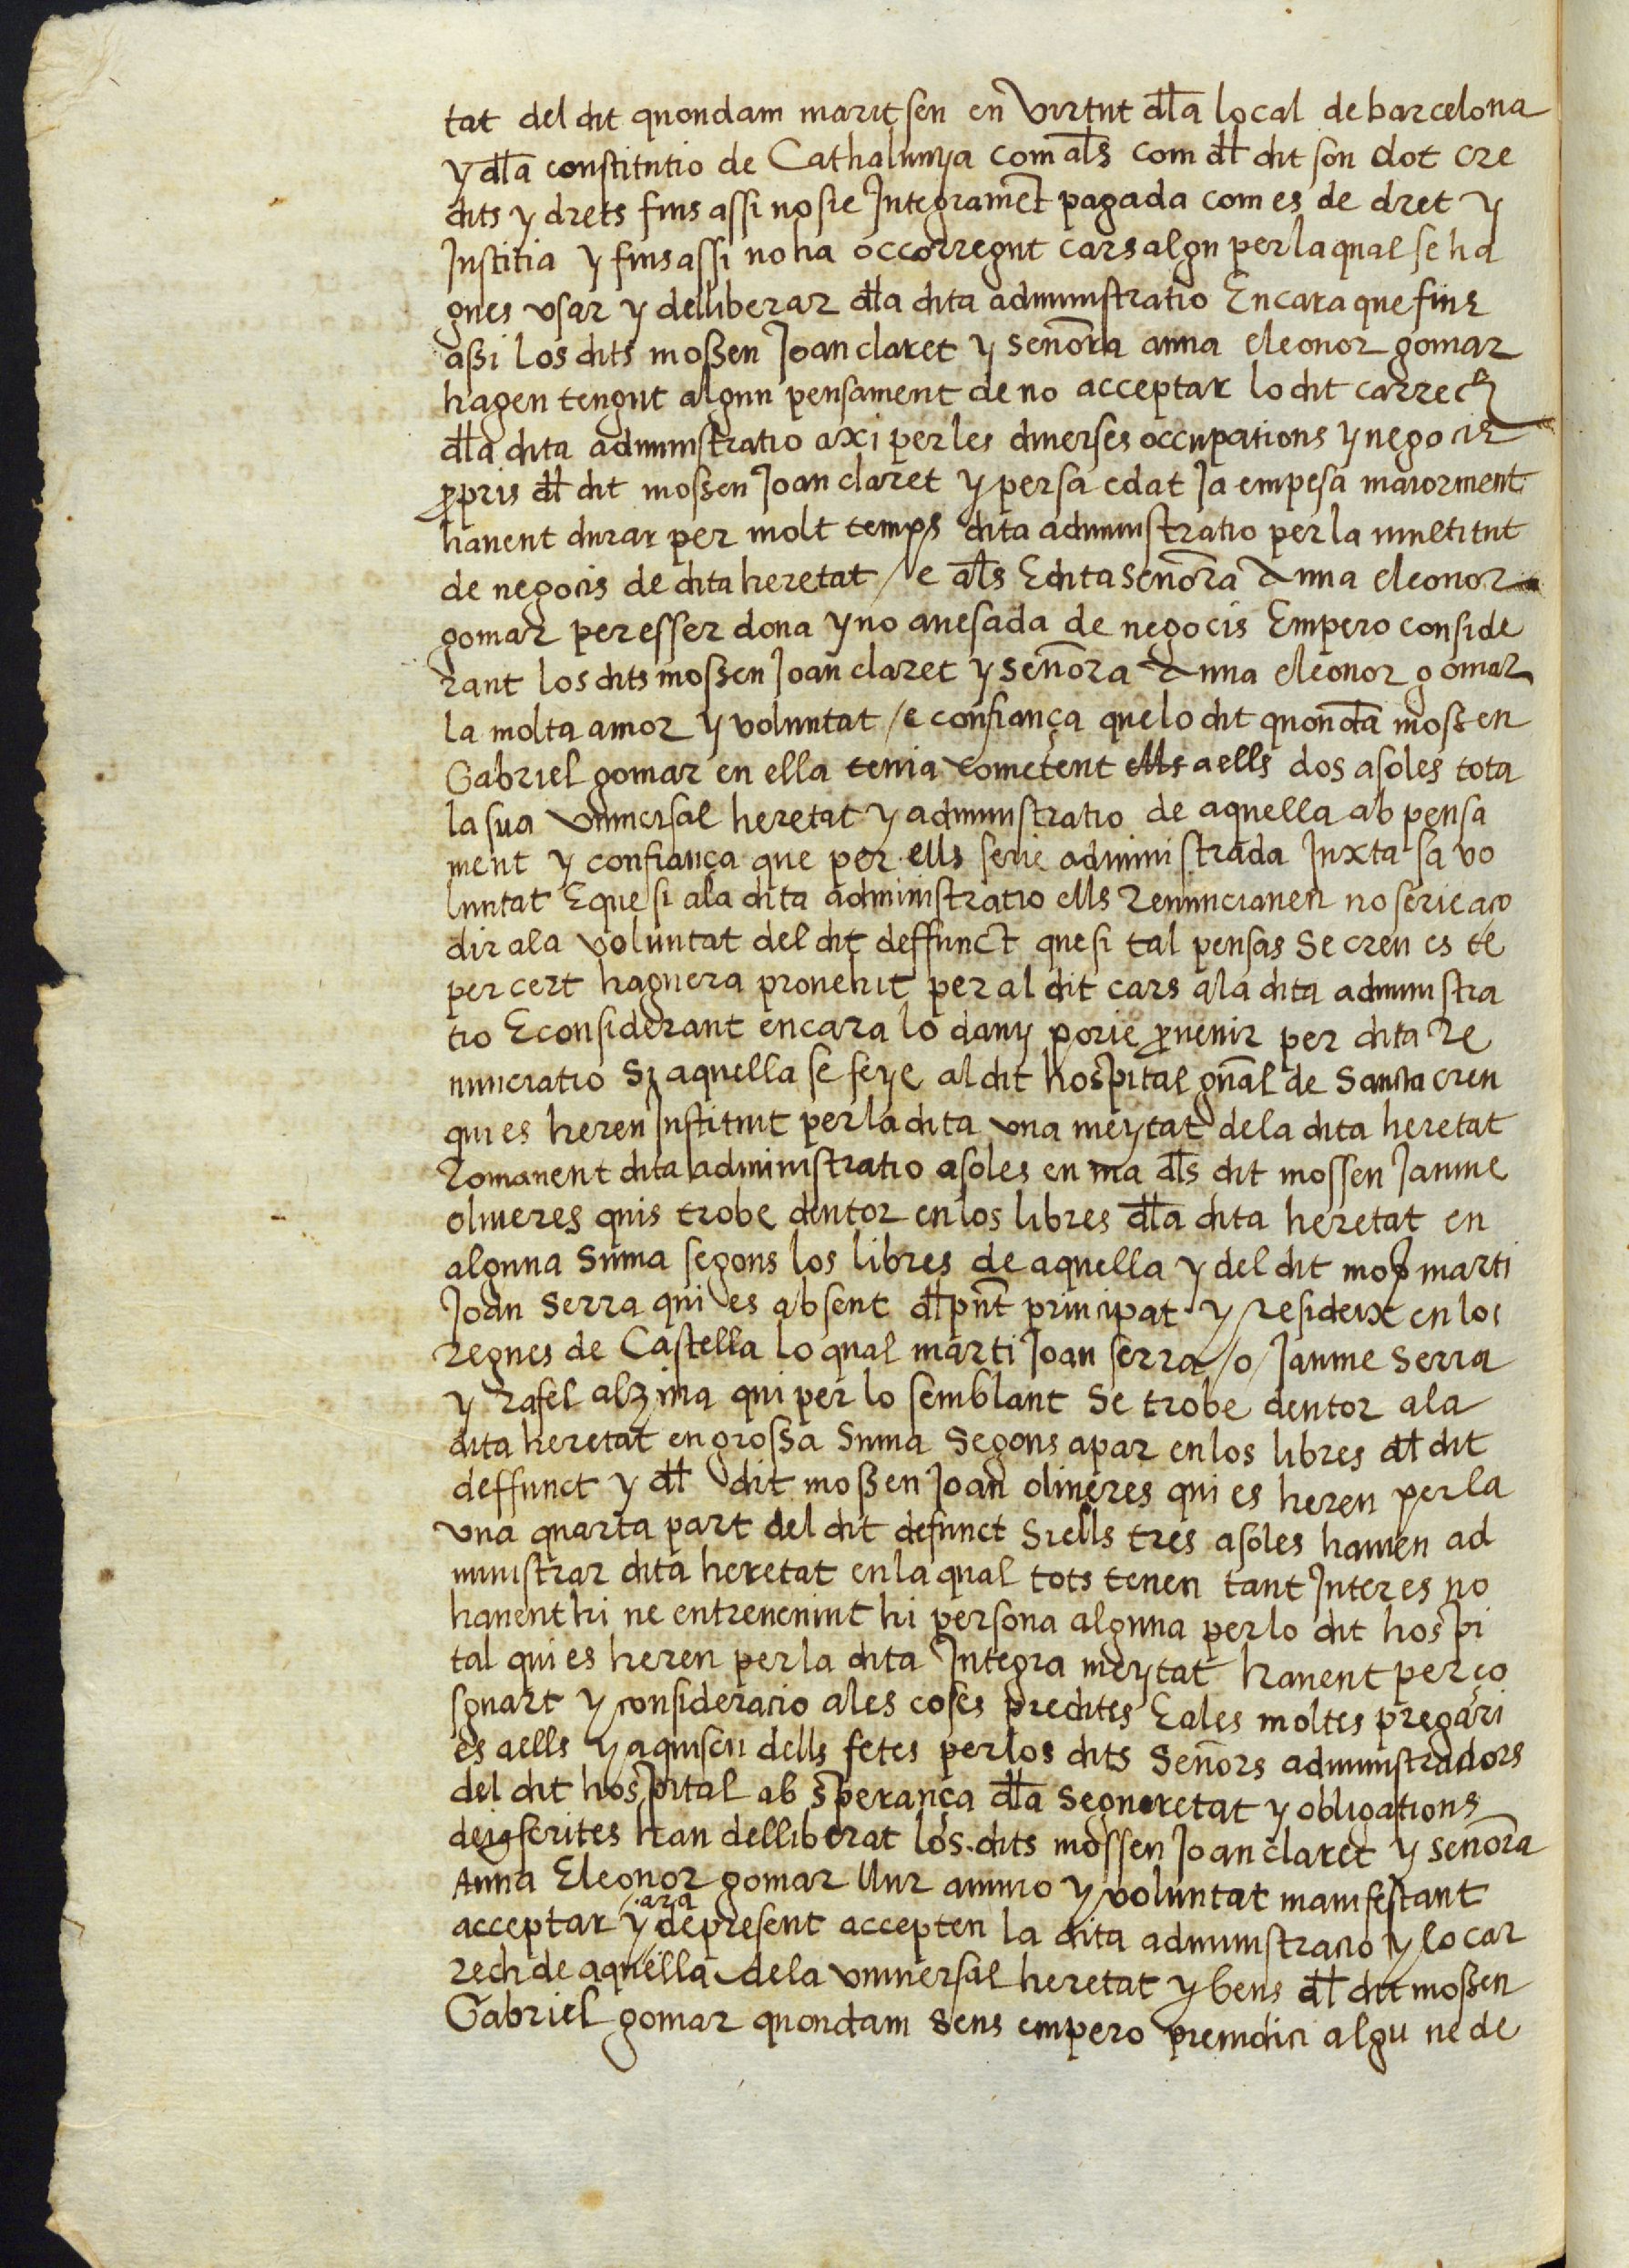 tat del dit quondam marit seu en virtut dla local de barcelona
y dla constitutio de Cathalunya com als com dl dit son dot cre
dits y drets fins assi no sie Integrament pagada com es de dret y
Justitia y fins assi no ha occorregut cars algu per la qual se ha
gues usar y delliberar dla dita administratio Encara que fins
assi los dits mossen Joan claret y señora anna eleonor gomar
hagen tengut algun pensament de no acceptar lo dit carrech
dla dita administratio axi per les diverses occupations y negocis
propris dl dit mossen Joan claret y per sa edat Ja empesa maiorment
havent durar per molt temps dita administratio per la multitut
de negocis de dita heretat / e als E dita señora Anna eleonor
gomar per esser dona y no avesada de negocis Empero conside
rant los dits mossen Joan claret y señora Anna eleonor gomar
la molta amor y voluntat / e confiança que lo dit quondā mossen
Gabriel gomar en ella tenia cometent ells a ells dos asoles tota
la sua universal heretat y administratio de aquella ab pensa
ment y confiança que per ells serie administrada Juxta sa vo
luntat E que si a la dita administratio ells renunciaven no serie aco
dir a la voluntat del dit deffunct que si tal pensas se creu es te
per cert haguera provehit per al dit cars a la dita administra
tio E considerant encara lo dany porie provenir per dita re
nunciatio Si aquella se feye al dit hospital gnāl de Sancta creu
qui es hereu Instituit per la dita una meytat de la dita heretat
Romanent dita administratio asoles en ma dls dit mossen Jaume
oliveres quis trobe deutor en los libres dla dita heretat en
alguna Suma segons los libres de aquella y del dit moss marti
Joan Serra qui es absent dl pnt principat y resideix en los
regnes de Castella lo qual marti Joan serra / o / Jaume Serra
y Rafel alzina qui per lo semblant Se trobe deutor a la
dita heretat en grossa Suma Segons apar en los libres dl dit
deffunct y dl dit mossen Joan oliveres qui es hereu per la
una quarta part del dit defunct Si ells tres asoles havien ad
ministrar dita heretat en la qual tots tenen tant Interes no
havent hi ne entrevenint hi persona alguna per lo dit hospi
tal qui es hereu per la dita Integra meytat havent per ço
sguart y consideracio a les coses predites E a les moltes pregari
es a ells y a quiscu dells fetes per los dits Señors administradors
del dit hospital ab sperança dla Seguretat y obligations
deiqscrites han delliberat los dits mossen Joan claret y señora
Anna Eleonor gomar llur animo y voluntat manifestant
acceptar y ara de present accepten la dita administracio y lo car
rech de aquella de la universal heretat y bens dl dit mossen
Gabriel gomar quondam sens empero preiudici algu ne de